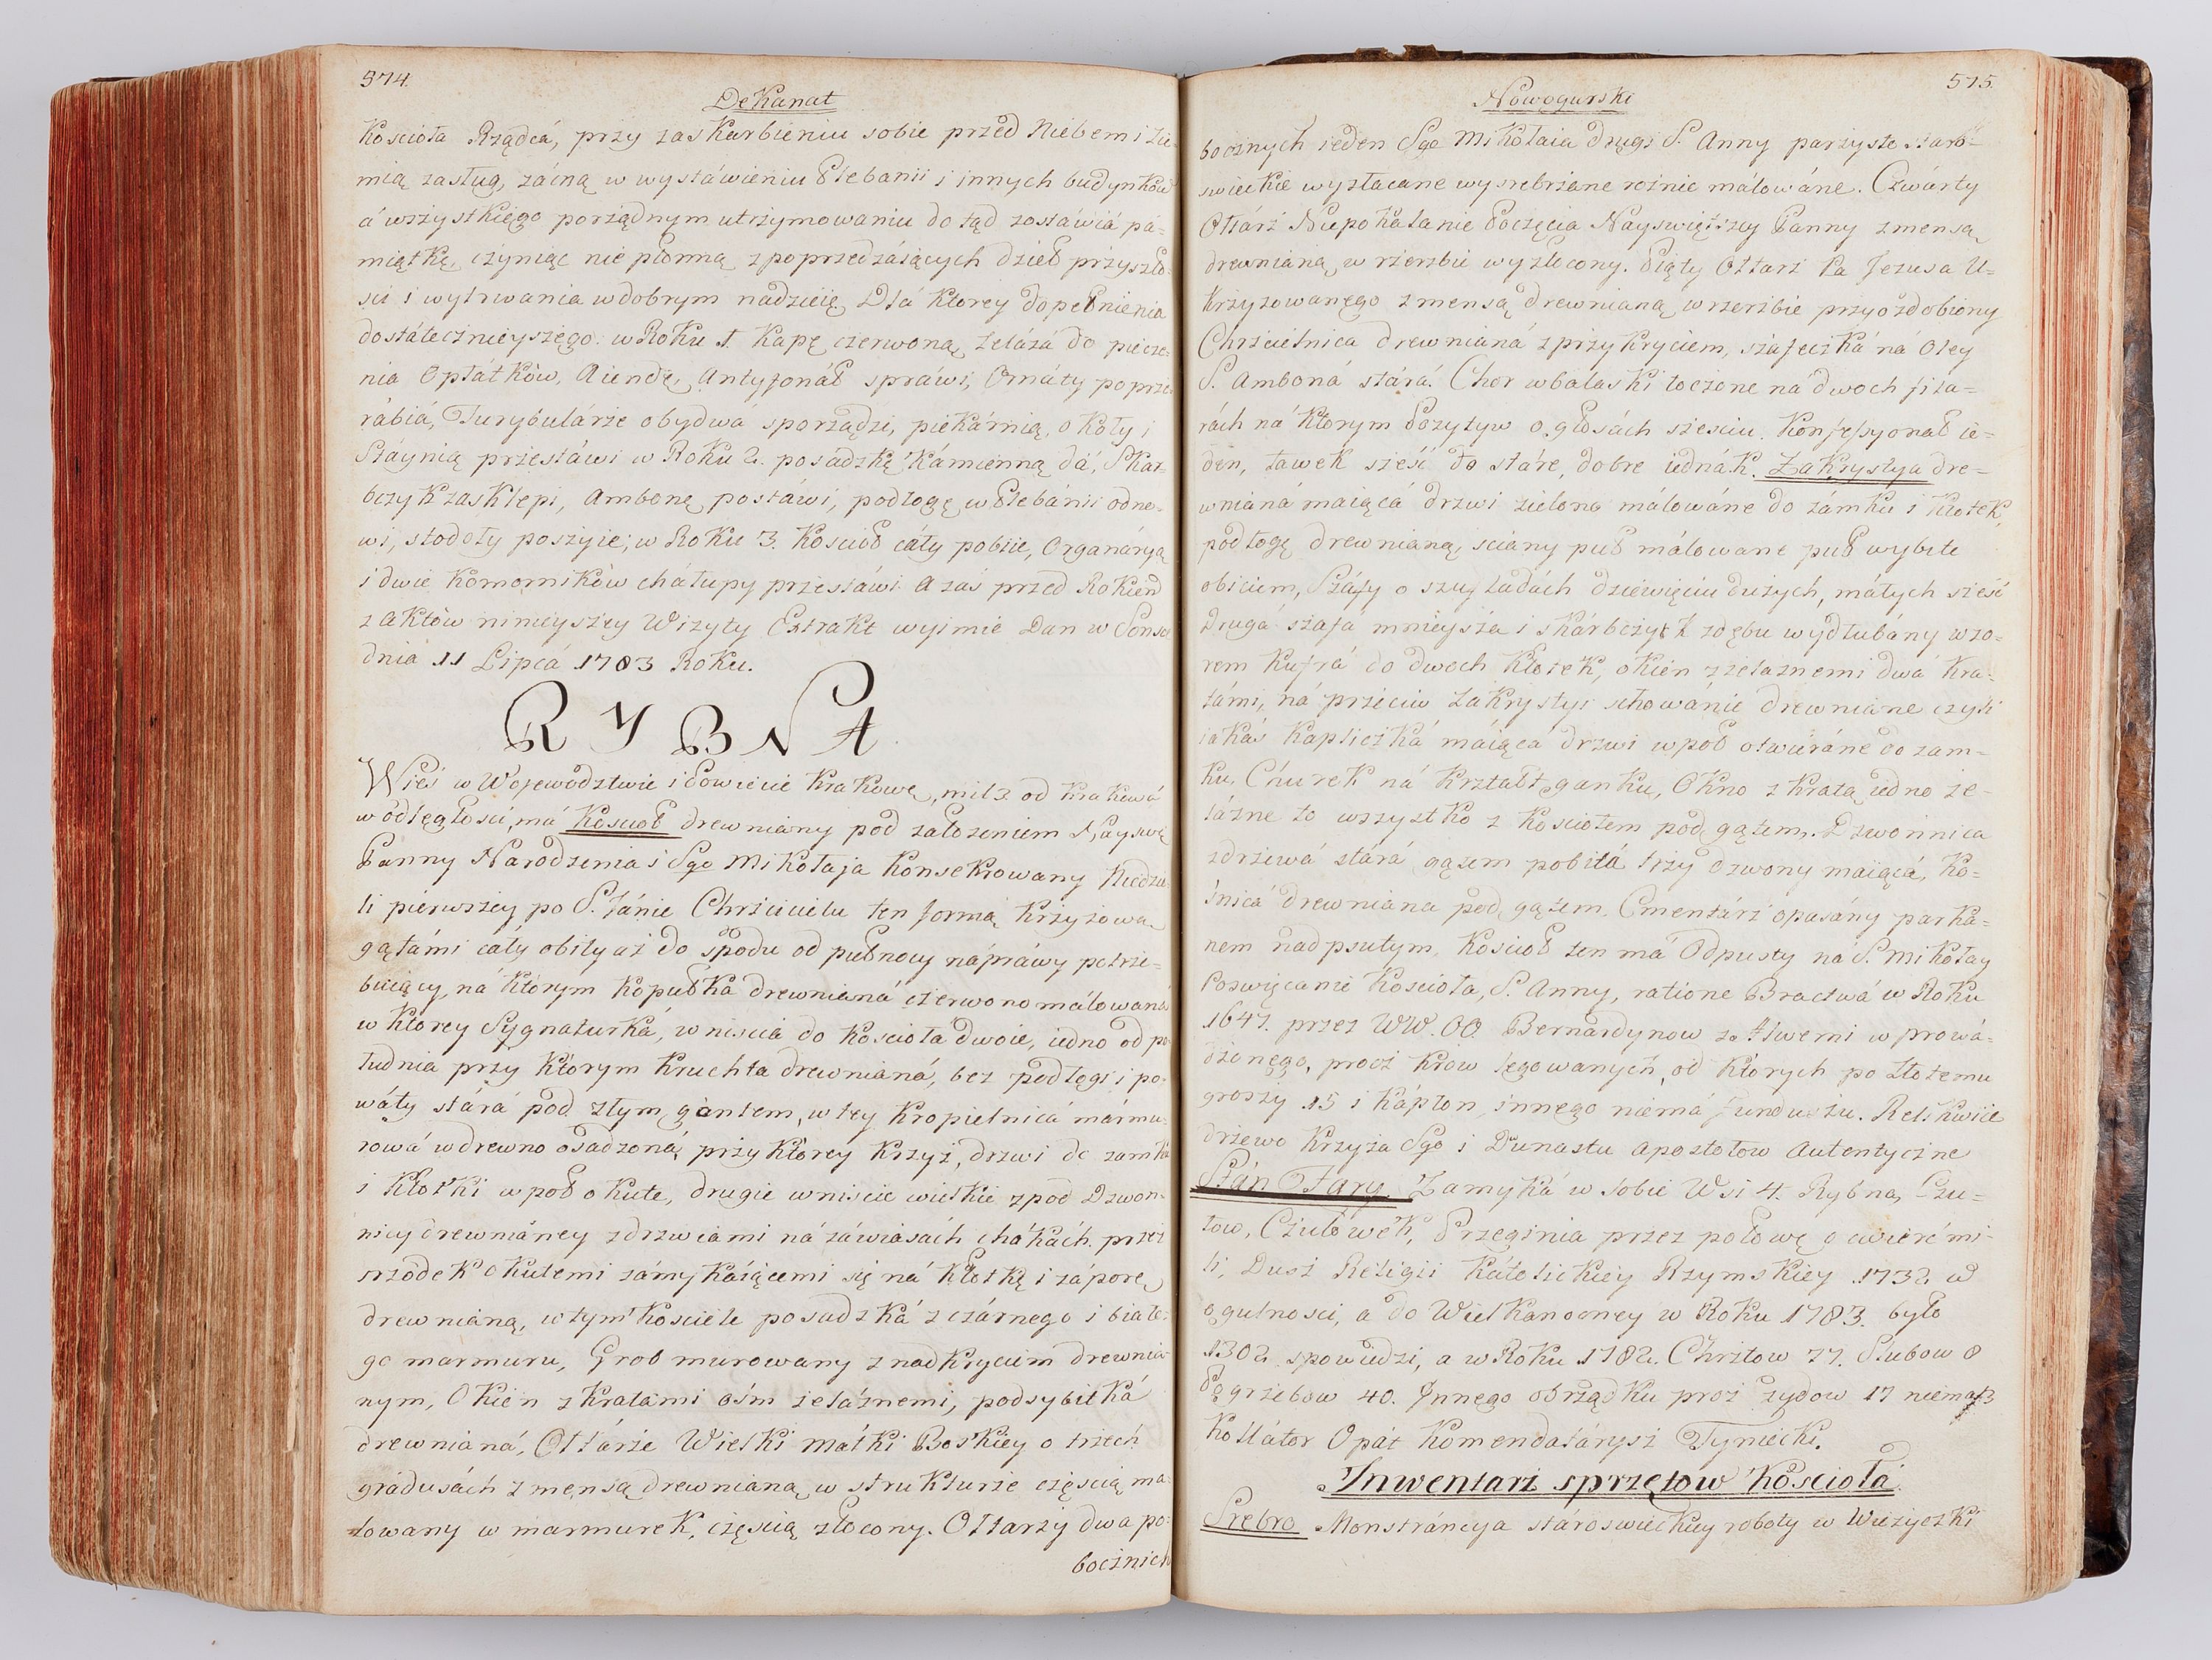 574.
Dekanat
Kościoła Rządcá, przy zaskarbieniu sobie przed Niebem i Zie-
mią zasługę, zácną w wystáwieniu Plebanii i innych budynków
á wszystkiego porządnym utrzymowaniu do tąd zostáwiá pá-
miątkę, czyniąc nie płonną z poprzedzáiących dzieł przyszło-
ści i wytrwania w dobrym nadzieię Dlá ktorey dopełnienia
dostátecznieyszego: w Roku 1. Kapę czerwoną, żelázá do piecze-
nia Opłátków, Aiendę, Antyfonáł spráwi, Ornáty poprze-
rábiá, Turybulárze obydwá sporządzi, piekárnią, okoły i
Stáynią przestáwi w Roku 2. posadzkę kámienną dá, Skar-
bczyk zasklepi, Ambonę postáwi, podłogę w Plebánii odno-
wi, stodoły poszyie; w Roku 3. Kościoł cáły pobiie, Organáryą
i dwie Komorników cháłupy przestáwi. A zaś przed Rokiem
z Aktów ninieyszey Wizyty Extrakt wyimie Dan w
dnia 11 Lipcá 1783 Roku.
RYBNA
Wieś w Woiewodztwie i Powiecie Krakow: mil 3 od Krakowá
w odległości, má Kościoł drewniany pod założeniem Nayswę
Panny Narodzenia i Sgo Mikołaja Konsekrowany Niedzie-
li pierwszey po S. Jánie Chrzcicielu ten formą krzyżową
gątámi cáły obity aż do spodu od pułnocy nápráwy potrze-
buiący, ná ktorym kopułká drewnianá czerwono málowaná
w ktorey Sygnaturká, wniscia do kościoła dwoie, iedno od po-
łudnia przy którym kruchta drewnianá, bez podłogi i po-
wáły stárá pod złym gontem, w tey kropielnicá mármu-
rowá w drewno osadzoná, przy ktorey krzyż, drzwi do zamku
i kłotki w poł okute, drugie wniscie wielkie z pod Dzwon-
nicy drewnianey z drzwiami ná záwiasách hákách przez
srzodek okutemi zámykáiącemi się ná kłotkę i záporę
drewnianą, w tym kościele posadzká z czárnego i białe-
go marmuru, Grob murowany z nadkryciem drewnia-
nym, Okien z kratami ośm żeláznemi, podsybitká
drewnianá, Ołtárze Wielki Mátki Boskiey o trzech
grádusách z mensą drewnianą w strukturze częścią ma-
lowany w marmurek, częścią złocony. Ołtarzy dwa po-
bocznich
Nowogurski
575.
bocznych ieden Sgo Mikołaia drugi S. Anny parzyste staro-
swieckie wyzłacane wysrebrzane rożnie málowáne. Czwárty
Ołtárz Niepokalanie Poczęcia Nayswiętszey Panny z mensą
drewnianą w rzezbie wyzłocony. Piąty Ołtarz Pa Jezusa U-
krzyżowanego z mensą drewnianą w rzezbie przyozdobiony
Chrzcielnica drewnianá z przykryciem, szafeczká ná Oley
S. Amboná stárá. Chor w balaski toczone ná dwoch fila-
rách ná ktorym Pozytyw o głosách sześciu. Konfessyonał ie-
den, ławek sześć to stáre, dobre iednák. Zakrystya dre-
wnianá maiącá drzwi zielono málowáne do zámku i kłotek,
podłogę drewnianą, sciány puł málowane puł wybite
obiciem, Száfy o szufladách dziewięciu dużych, máłych sześć
Drugá száfa mnieysza i skárbczyk z dębu wydłubány wzo-
rem kufrá do dwoch kłotek, okien z żelaznemi dwá kra-
támi, ná przeciw Zakrystyi schowánie drewniane czyli
iakáś kapliczká máiącá drzwi w poł otwieráne do zam-
ku. Churek ná krztałt ganku, Okno z kratą iedno że-
lázne to wszystko z kościołem pod gątem. Dzwonnica
z drzewá stárá gązem pobitá trzy dzwony maiącá, Ko-
śnicá drewniana pod gątem. Cmentárz opasány parka-
nem nadpsutym. Kościoł ten má Odpusty ná S. Mikołay
Poswięcanie Kościoła, S. Anny, ratione Bractwá w Roku
1647. przez WW. OO. Bernardynow z Alwerni wprowá-
dzonego, procz krow legowanych, od ktorych po złotemu
groszy 15 i kápłon, innego niemá funduszu. Relikwiie
drzewo Krzyża Sgo i Dunastu Apostołow Autentyczne
Stán Fary Zamyká w sobie Wsi 4. Rybna, Czu-
łow, Czułówek, Przeginia przez połowę o cwierć mi-
li, Dusz Religii Kátolickiey Rzymskiey 1732 w
ogulnosci, a do Wielkanocney w Roku 1783. było
1302 spowiedzi, a w Roku 1782. Chrztow 77. Slubow 8
Pogrzebow 40. Innego obrządku procz żydow 17 niemasz
Kollátor Opát Komendatáryusz Tyniecki.
Inwentarz sprzętow Kościoła
Srebro Monstráncya stároswieckiey roboty w Wieżyczki